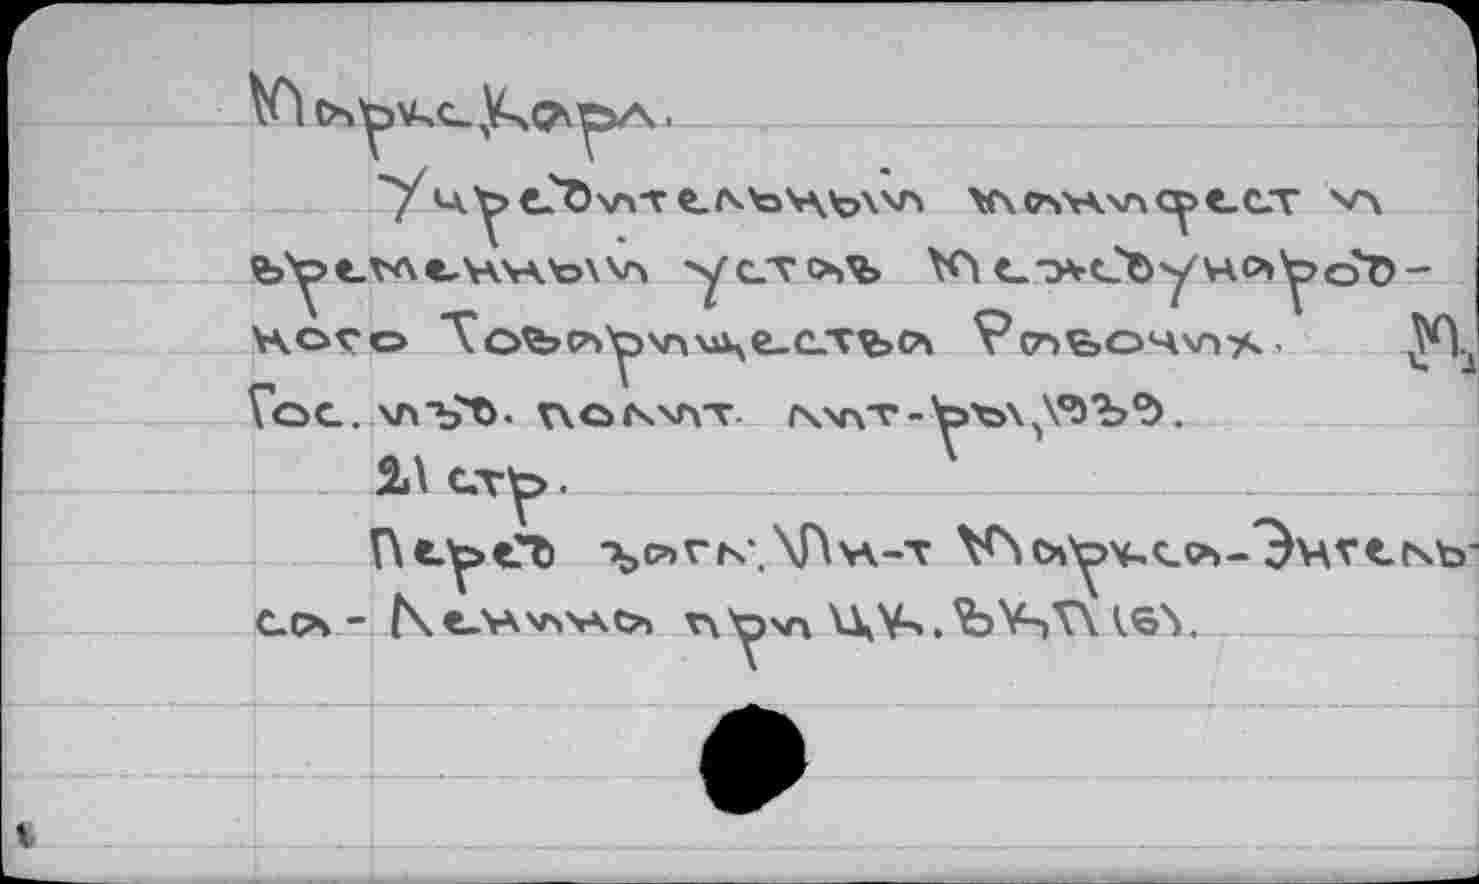 Маркс, Карл.
Учредительный манифест и
временный устав Международ-
ного Товарищества Рабочих. М.,
Гос. изд. полит. лит-ры, 1939.
21 стр.
Перед загл: Ин-т Маркса-Энгель-
са-Ленина при ЦК. ВКП(б).